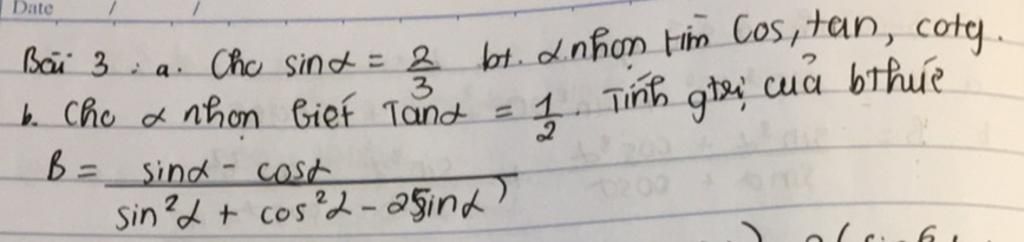 Date / /
Bài 3 : a. Cho sinα = 2/3 bt. α nhọn tìm Cos, tan, cotg.
b. Cho α nhọn biết Tanα = 1/2. Tính gtrị của bthức
B = (sinα - cosα)/(sin²α + cos²α - 2sinα)